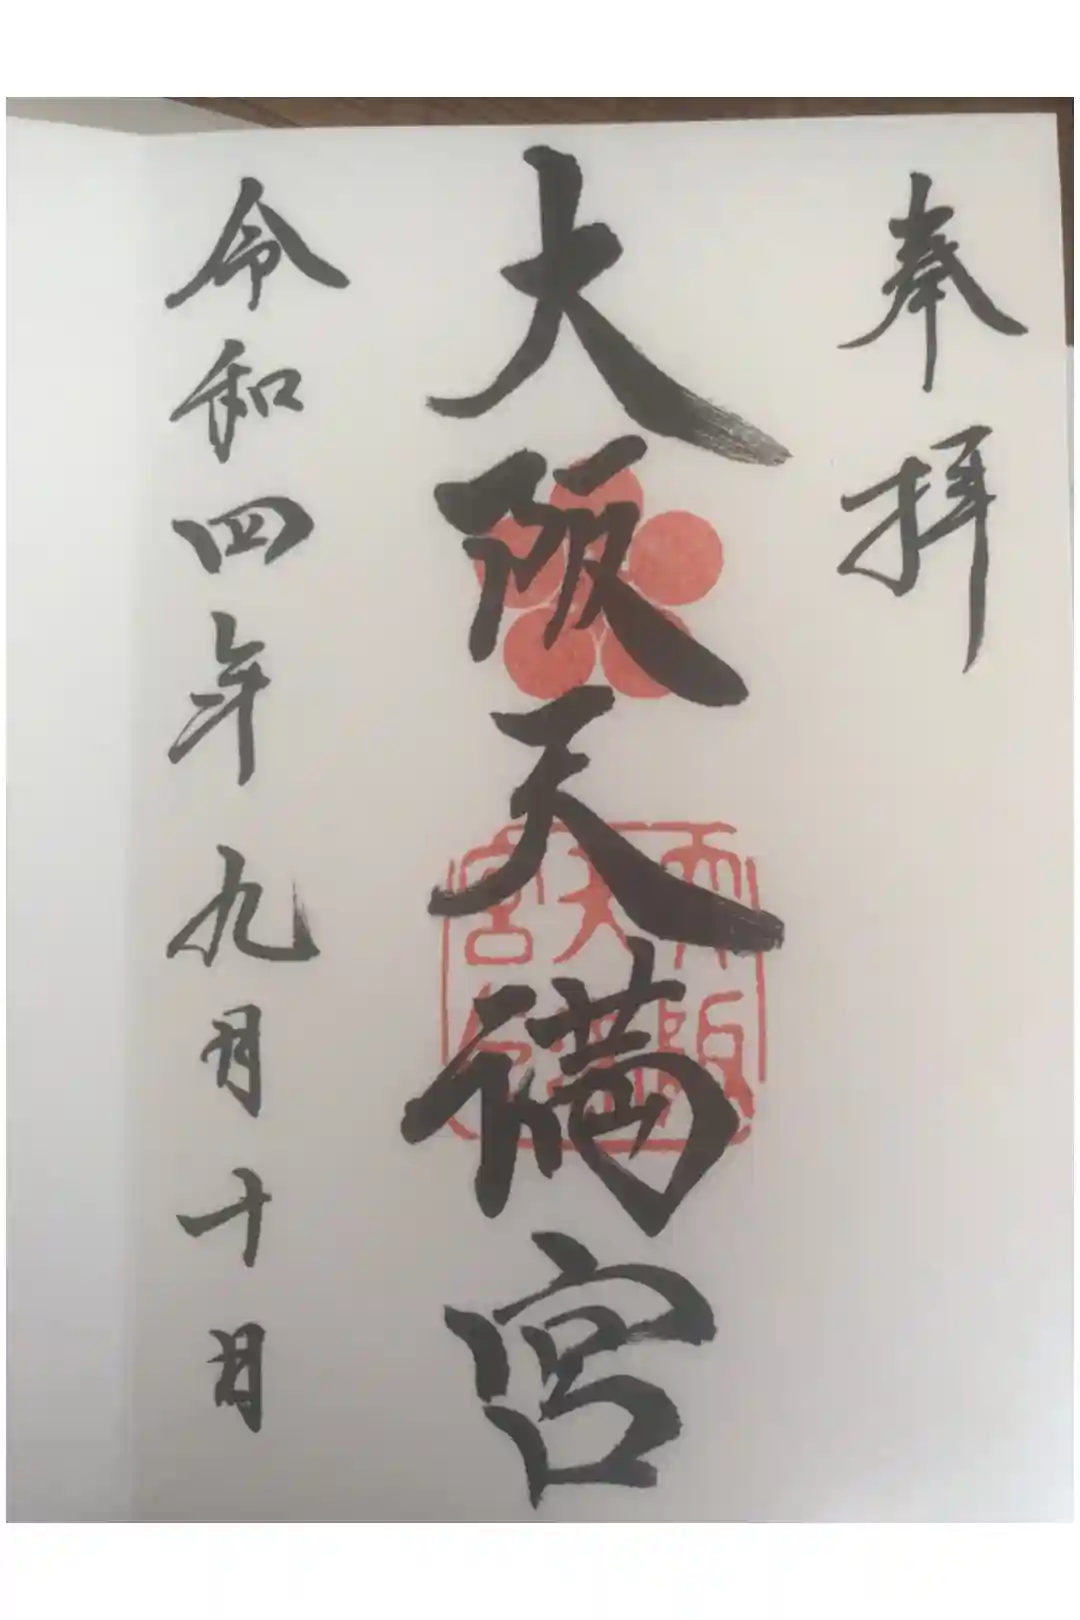 奉拝
大阪天満宮
大阪天満宮
令和四年九月十日